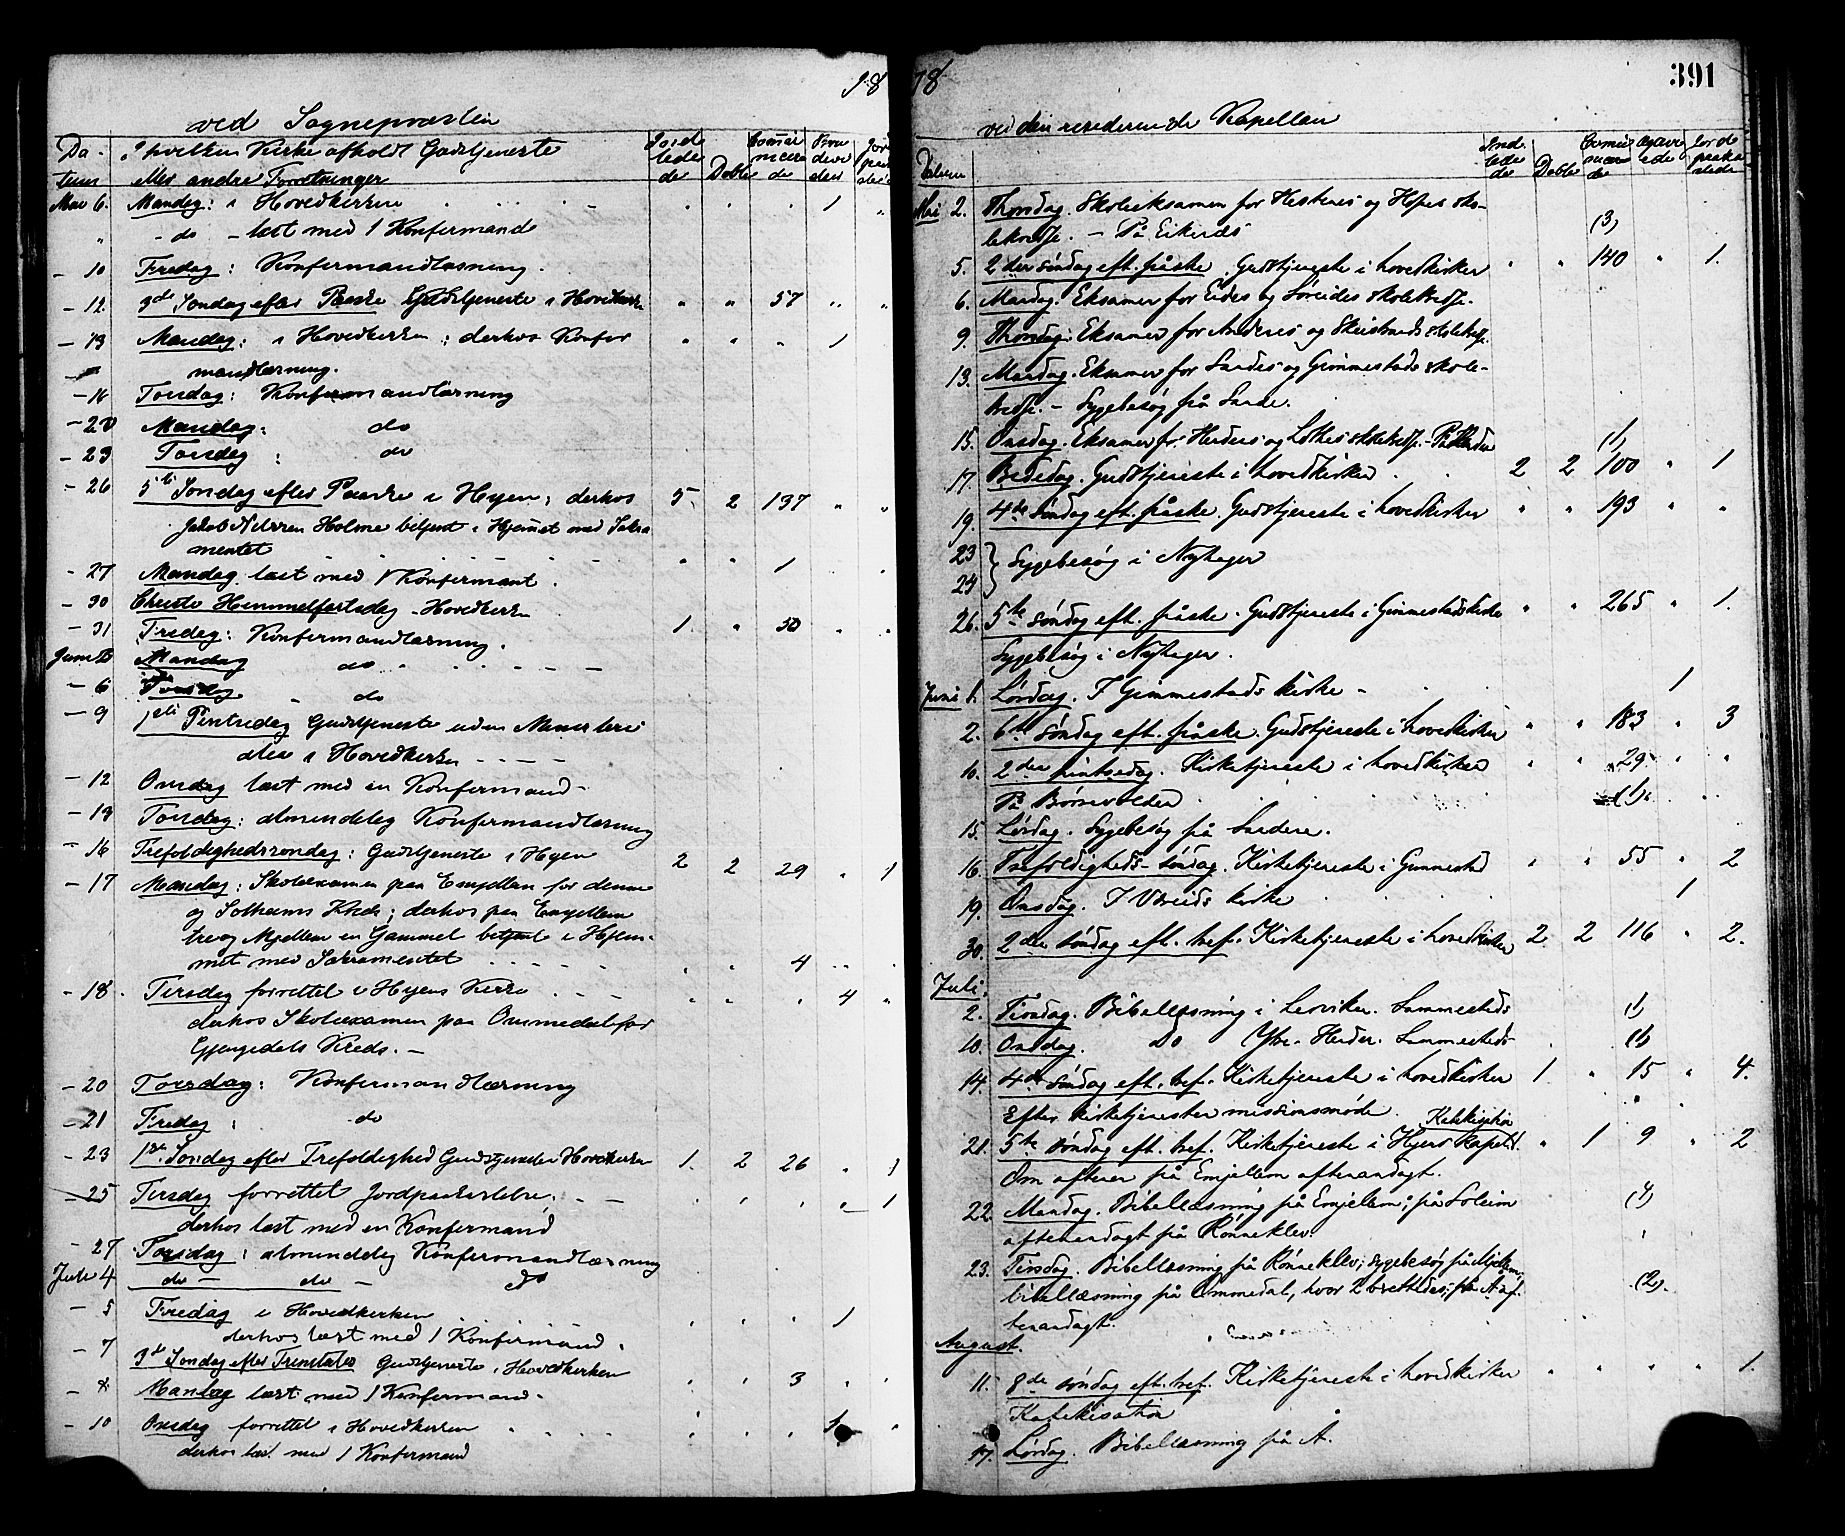 18
ved Sognepræsten
Da-
tum
I hvilken Kirke afholdt Gudstjeneste
eller andre Forretninger
Døbte
Mai 6. Mandag: i Hovedkirken 1
" - do - læst med 1 Konfirmand
- 10 Fredag: Konfirmandlæsning.
- 12 3die Søndag efter Paaske Gudstjeneste i Hovedkirken " " 57 " "
- 13 Mandag: i Hovedkirken; derhos Konfir " " " 1
mandlæsning.
- 16 Torsdag: Konfirmandlæsning
- 20 Mandag: do
- 23 Torsdag: do
- 26 5te Søndag efter Paaske i Hyen; derhos 5 2 137 " "
Jakob Nilssen Holme betjent i Hjemmet med Sakra
mentet " " 1
- 27 Mandag læst med 1 Konfirmant.
- 30 Christi Himmelfartsdag - Hovedkirken 1. " 50 " "
- 31 Fredag: Konfirmandlæsning.
Juni 3 Mandag do
- 6 Torsdag - do
- 9 1ste Pintsedag Gudstjeneste uden
i Hovedkirken
- 12 Onsdag læst med en Konfirmand -
- 13 Torsdag: almindelig Konfirmandlæsning
- 16 Trefoldighedssøndag: Gudstjeneste i Hyen 2 2 29 " 1
- 17 Mandag: Skoleexamen paa Emjellem for denne
og Solheims Kreds; derhos paa Emjellem
en Gammel betjent i Hjem-
met med Sakramentet " " 4 " "
- 18. Tirsdag forrettet i Hyens Kirke " " " 4 "
derhos Skoleexamen paa Ommedal for
Gjengedals Kreds. -
- 20 Torsdag: Konfirmandlæsning
- 21 Fredag: do
- 23 1ste Søndag efter Trefoldighed Gudstjeneste Hovedkirken 1. 2 26 " 1
- 25 Tirsdag forrettet Jordpaakastelse; " " " " 1
derhos læst med en Konfirmand
- 27 Torsdag: almindelig Konfirmandlæsning
Juli 4 do - do - do
- 5 Fredag i Hovedkirken " " " 1
derhos læst med 1 Konfirmand.
- 7 3die Søndag efter Trinitatis Gudstjeneste i Hovedkirken " " 3 " "
- 8 Mandag læst med 1 Konfirmand.
- 10 Onsdag forrettet i Hovedkirken
derhos læst med 1 Konfirmand
78
391
ved den residerende Kapellan
Datum
Døbte
Mai 2. Thorsdag. Skoleeksamen for Hestenes og Hopes sko-
lekredse. - På Eikenes (3)
5. 2den søndag eft. påske. Gudstjeneste i hovedkirken " " 140 " 1.
6. Mandag. Eksamen for Eides og Søreides skolekredse.
9. Thorsdag. Eksamen for Andenes og Skeistrands skolekredse.
13. Mandag. Eksamen for Sandes og Gimmestads skole-
kredse. - Sygebesøg på Sande.
15. Onsdag. Eksamen for Hendens og Lothes skolekredse. - På Henden (1)
17. Bededag. Gudstjeneste i hovedkirken 2 2 100 " 1
19. 4de søndag eft. påske. Gudstjeneste i hovedkirken " " 193 " "
23
24 } Sygebesøg i Nyhagen
26. 5te søndag eft. påske. Gudstjeneste i Gimmestads kirke " " 265 " 1.
Sygebesøg i Nyhagen.
Juni 1. Lørdag. I Gimmestads kirke - 1
2. 6te søndag eft. påske. Gudstjeneste i hovedkirken " " 183 " 3
10. 2den pintsedag. Kirketjeneste i hovedkirken " " 29 " "
På Børsevolden (1)
15. Lørdag. Sygebesøg på Sandene.
16. Trefoldigheds-søndag. Kirketjeneste i Gimmestad " " 55 " 2
19. Onsdag. I Vereids kirke 1
30. 2den søndag eft. tref. Kirketjeneste i hovedkirken 2. 2 116 " 2.
Juli.
2. Tirsdag. Bibellæsning i Lervik. Sammesteds (1)
10. Onsdag. do Ytre-Henden. Sammesteds (1)
14. 4de søndag eft. tref. Kirketjeneste i hovedkirken 1. " 15 " 4.
Efter kirketjenesten missionsmøde.
Katekisation
21. 5te søndag eft. tref. Kirketjeneste i Hyens kapel. " 1 9 " 2
Om aftenen på Emjellem aftenandagt.
22. Mandag. Bibellæsning på Emjellem; på Soleim (4)
aftenandagt på Rønneklev.
23. Tirsdag. Bibellæsning på Rønneklev; sygebesøg på Mjellem;
bibellæsning på Ommedal, hvor 2 berettedes; på Å af- (2).
tenandagt.
August.
11. 8de søndag eft. tref. Kirketjeneste i hovedkirken " " " " 1.
Katekisation
17. Lørdag. Bibellæsning på Å.